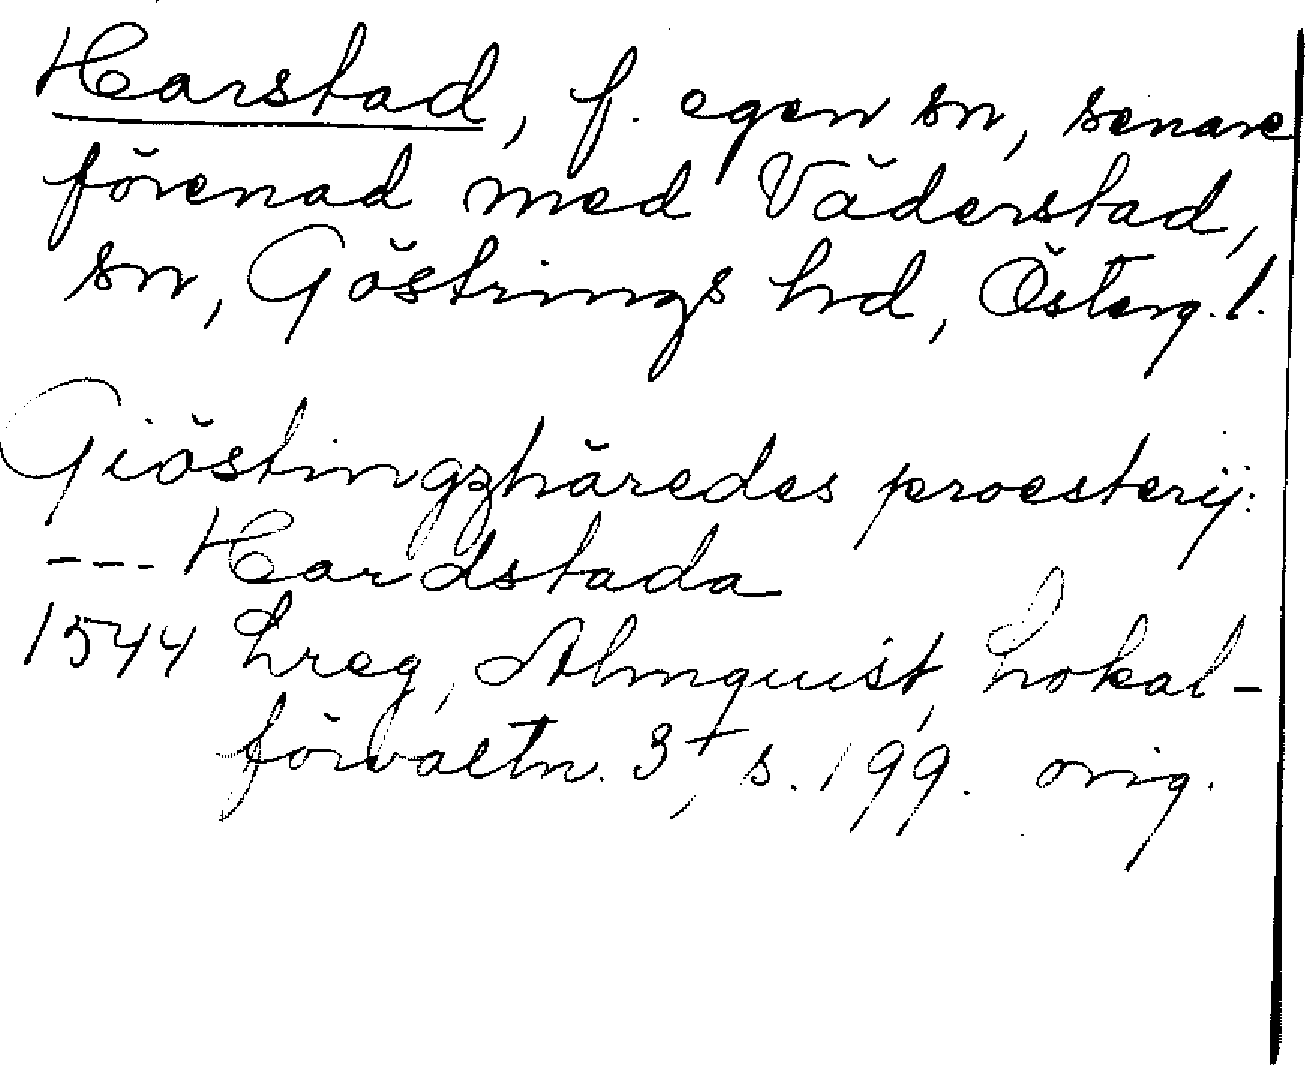 Harstad, f. egen sn, senare
förenad med Väderstad,
sn, Göstrings hd, Österg. l.
Giöstingzhäredes proesterij:
--- Hardstada
1544 Lreg, Almquist, Lokal-
förvaltn. 3+, s. 199. orig.